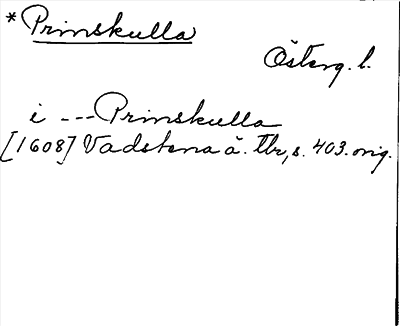 *Prinskulla
Österg. l.
i --- Prinskulla
[1608] Vadstena ä. Tbr, s. 403. orig.